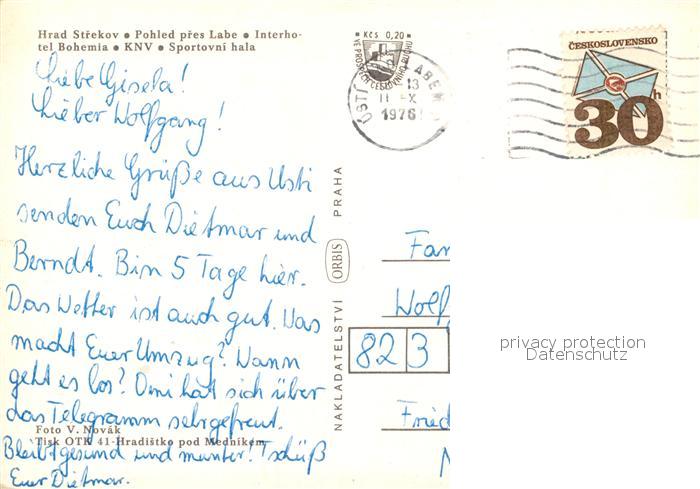 Hrad Střekov • Pohled přes Labe • Interho-
tel Bohemia • KNV • Sportovní hala
Kčs 0,20
VE PROSPĚCH
ÚSTÍ
LABEM
13
11 -X
1976
ČESKOSLOVENSKO
30h
Liebe Gisela!
Lieber Wolfgang!
Herzliche Grüße aus Usti
senden Euch Dietmar und
Berndt. Bin 5 Tage hier.
Das Wetter ist auch gut. Was
macht Euer Umzug? Wann
geht es los? Omi hat sich über
das Telegramm sehr gefreut.
Foto V. Novák
Tisk OTK 41-Hradištko pod Medníkem
Bleibt gesund und munter! Tschüß
Euer Dietmar.
NAKLADATELSTVÍ ORBIS PRAHA
Fam
Wolf
82 3
Fried
privacy protection
Datenschutz